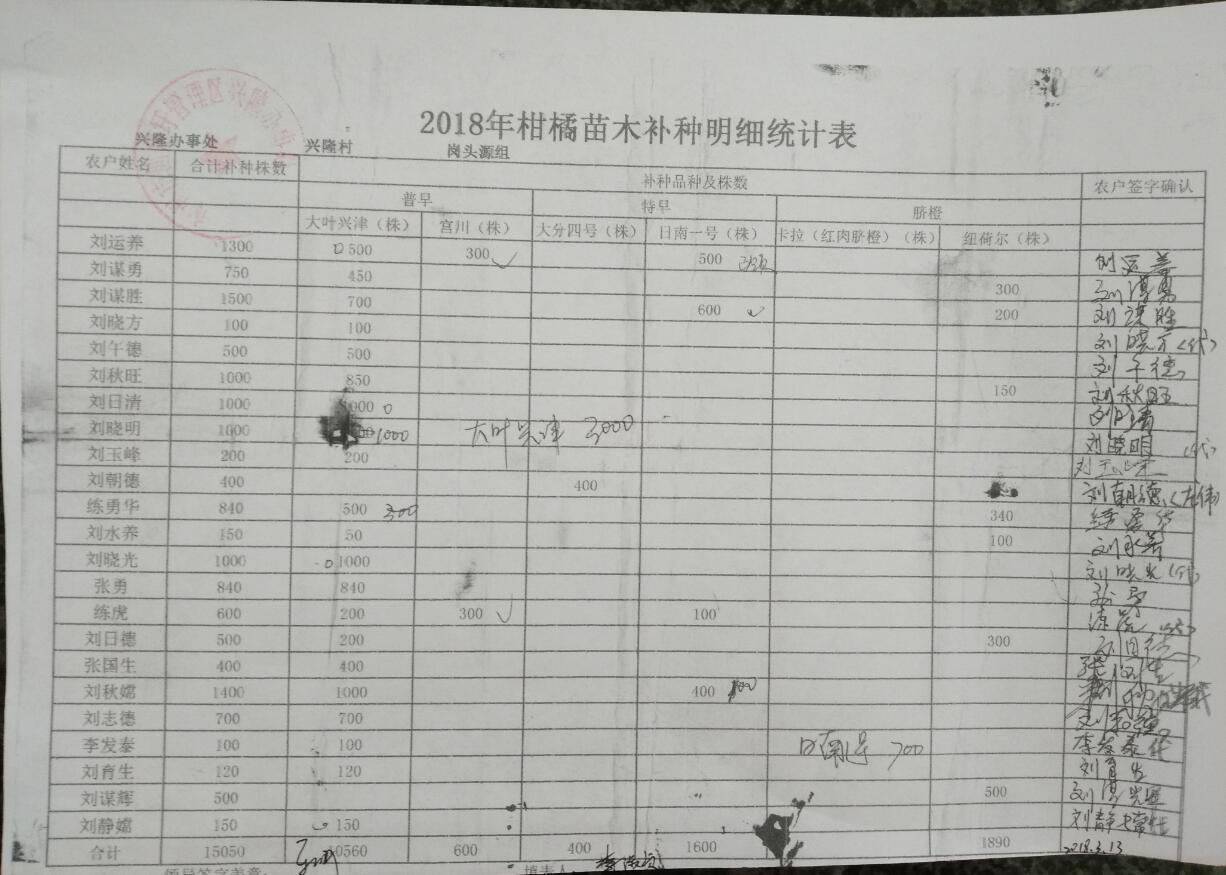 2018年柑橘苗木补种明细统计表
兴隆办事处 兴隆村 岗头源组
农户姓名 合计补种株数 补种品种及株数 农户签字确认
普早 特早 脐橙
大叶兴津（株） 宫川（株） 大分四号（株） 日南一号（株） 卡拉（红肉脐橙）（株） 纽荷尔（株）
刘运养 1300 500 300 ✓ 500 已领 刘运养
刘谋勇 750 450 300 刘谋勇
刘谋胜 1500 700 600 ✓ 200 刘谋胜
刘晓方 100 100 刘晓方（代）
刘午德 500 500 刘午德
刘秋旺 1000 850 150 刘秋旺
刘日清 1000 刘日清
刘晓明 1000 1000 大叶兴津 3000 刘晓明（代）
刘玉峰 200 200 刘玉峰
刘朝德 400 400 刘朝德
练勇华 840 500 300 340 练勇华
刘水养 150 50 100 刘水养
刘晓光 1000 1000 刘晓光（代）
张勇 840 840 张勇
练虎 600 200 300 ✓ 100 练虎
刘日德 500 200 300 刘日德
张国生 400 400 张国生
刘秋嬬 1400 1000 400
刘志德 700 700 刘志德
李发泰 100 100 日南1号 700 李发泰代
刘育生 120 120 刘育生
刘谋辉 500 500 刘谋辉
刘静嬬 150 150 刘静嬬
合计 15050 600 400 1600 1890 2018.3.13
领导签字盖章： 填表人：